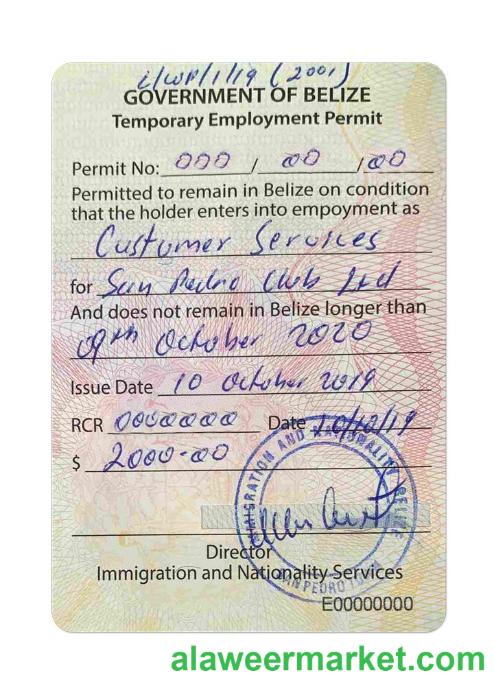 i/WP/1/19 (2001)
GOVERNMENT OF BELIZE
Temporary Employment Permit
Permit No: 000 / 00 / 00
Permitted to remain in Belize on condition
that the holder enters into empoyment as
Customer Services
for San Pedro Club Ltd
And does not remain in Belize longer than
09th October 2020
Issue Date 10 October 2019
RCR 0000000 Date 10/10/19
$ 2000-00
IMMIGRATION AND NATIONALITY BELIZE
Director
Immigration and Nationality Services
SAN PEDRO
E00000000
alaweermarket.com